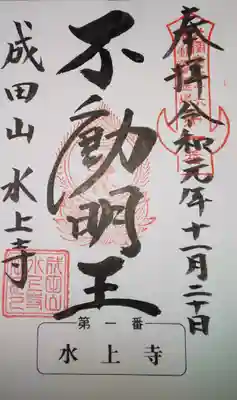 奉拝 令和元年十一月二十日
不動明王
成田山 水上寺
第一番
水上寺